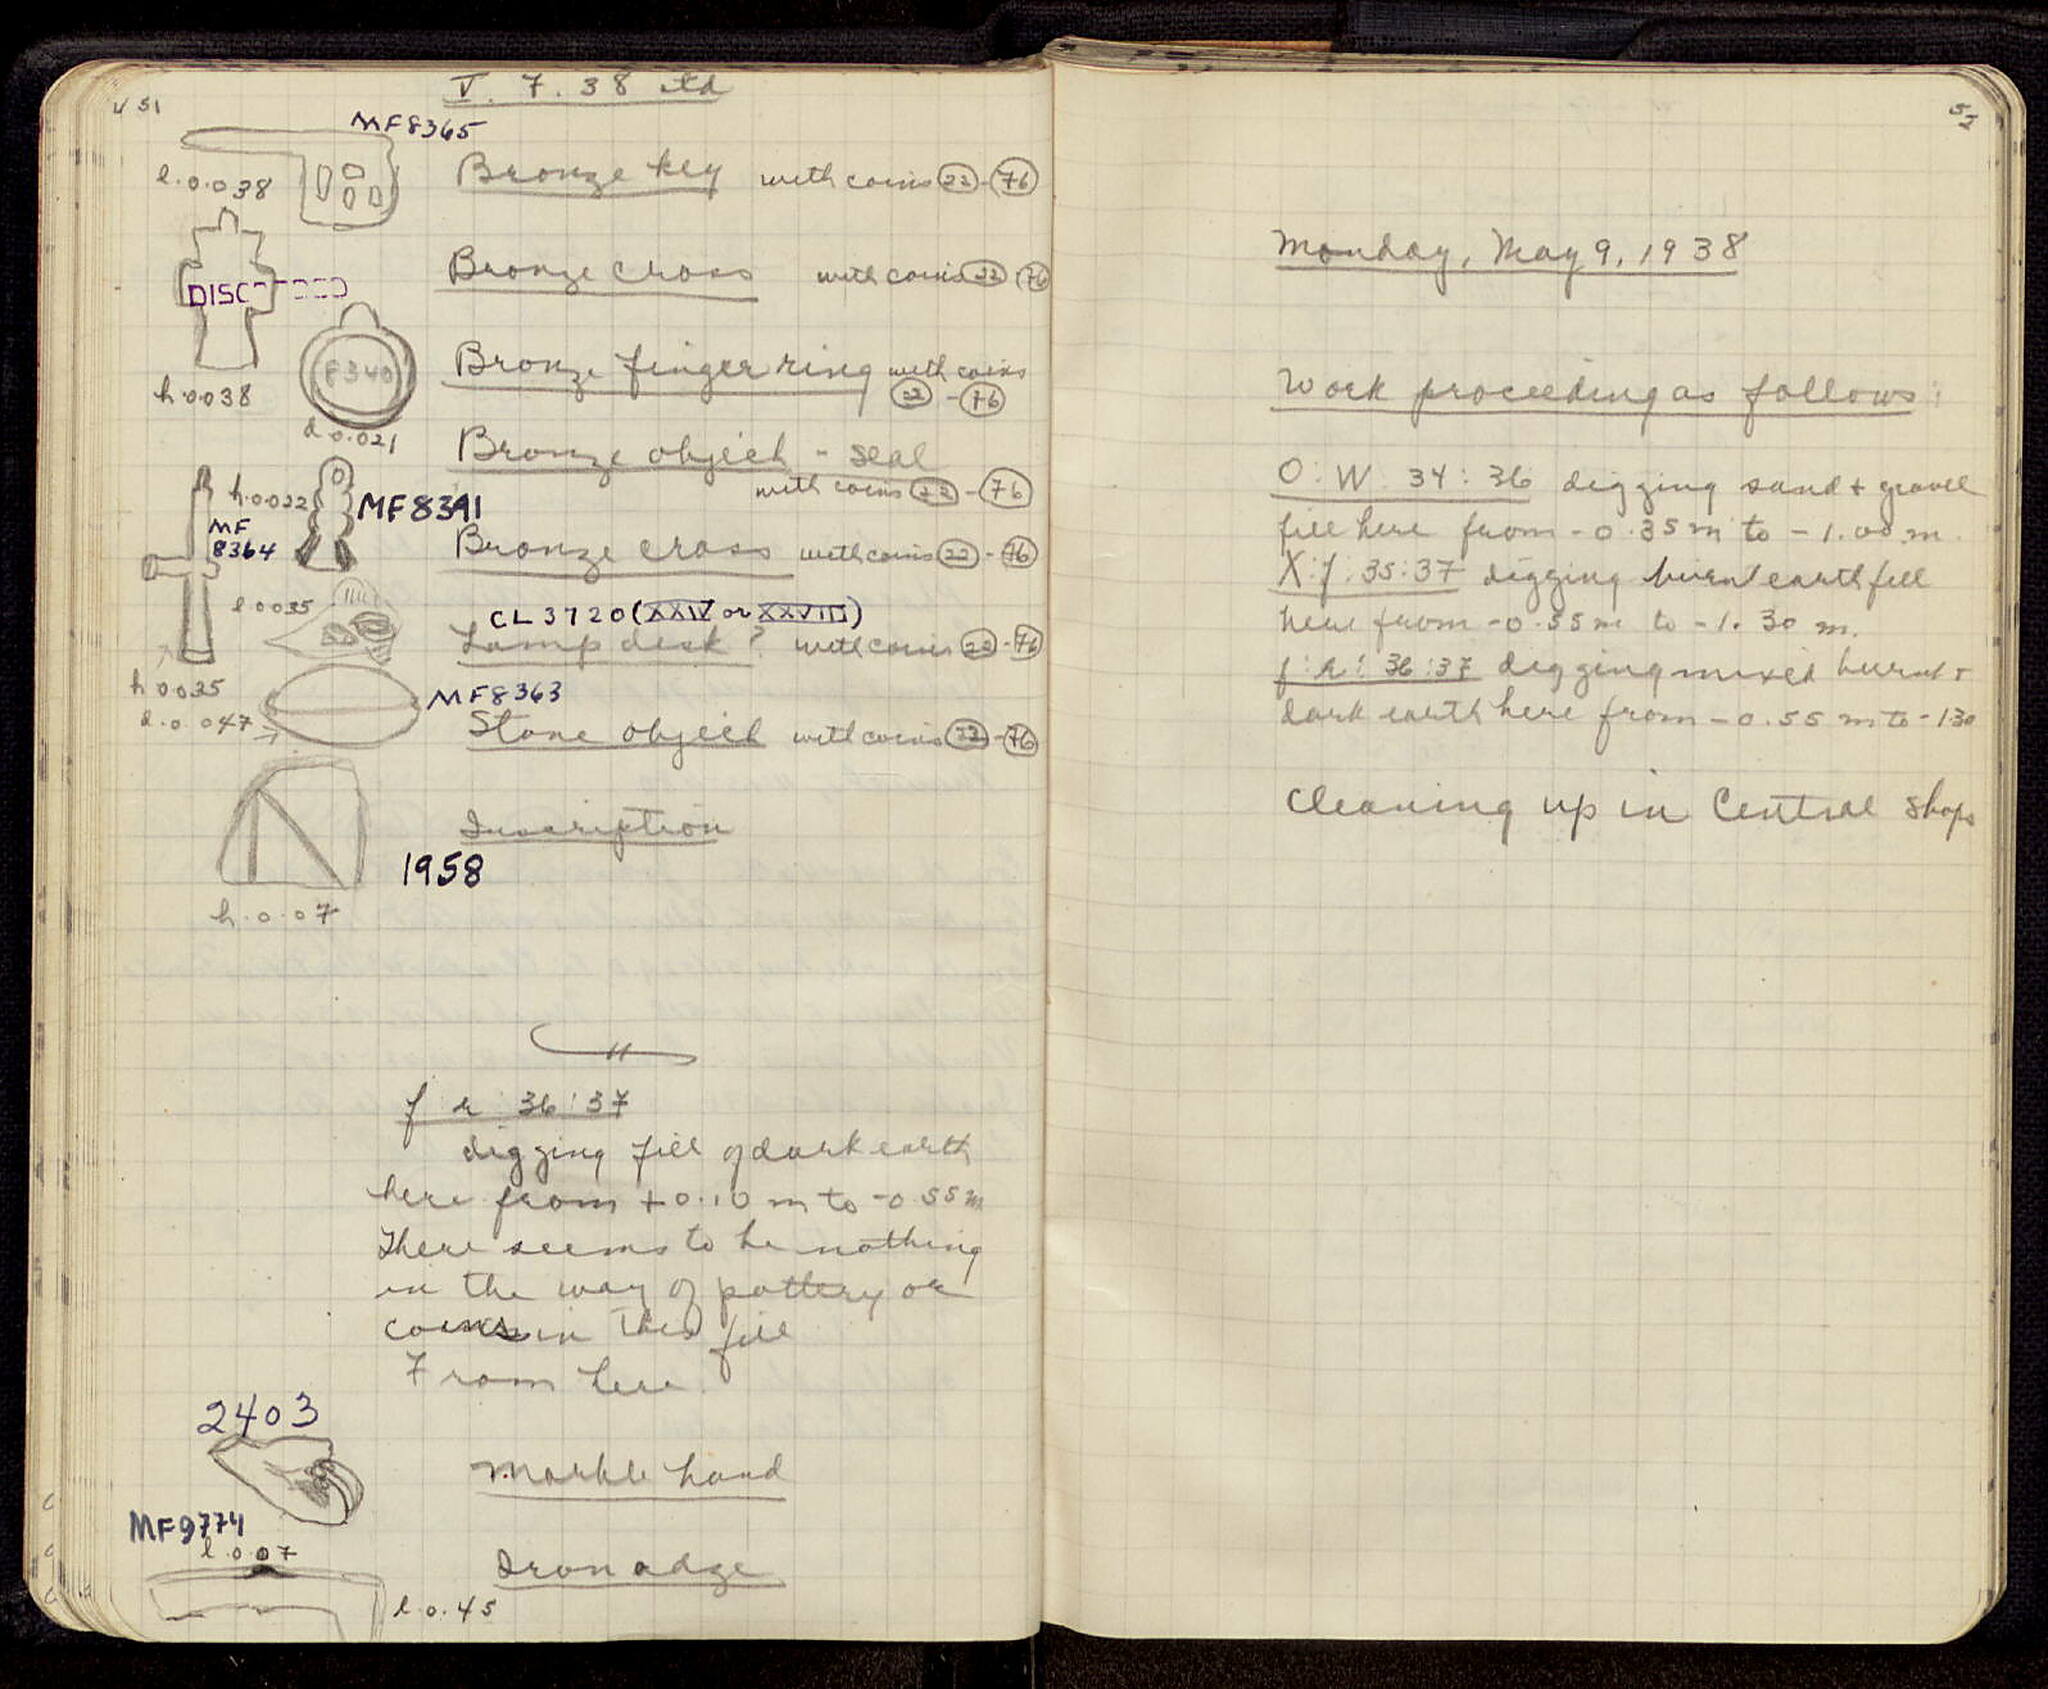 v 51
V. 7. 38 ctd
MF8365
l. 0.038
Bronze key with coins 22 - 76
DISC
Bronze cross with coins 22 76
h. 0.038
F340
d 0.021
Bronze finger ring with coins
22 - 76
Bronze object - seal
with coins 22 - 76
h. 0.022
MF8391
MF
8364
Bronze cross with coins 22 - 76
l 0.035
CL 3720 (XXIV or XXVIII)
Lamp disk? with coins 22 - 76
h 0.035
d. 0.047
MF8363
Stone object with coins 22 - 76
Inscription
1958
h. 0.07
f : h : 36 : 37
digging fill of dark earth
here from +0.10 m to -0.55 m
There seems to be nothing
in the way of pottery or
coins in this fill
From here
2403
Marble hand
MF9774
l. 0.07
Iron adze
l. 0.45
52
Monday, May 9, 1938
Work proceeding as follows:
O : W : 34 : 36 digging sand + gravel
fill here from -0.35 m to -1.00 m.
X : f : 35 : 37 digging burnt earth fill
here from -0.55 m to -1.30 m.
f : h : 36 : 37 digging mixed burnt +
dark earth here from -0.55 m to -1.30
Cleaning up in Central Shops